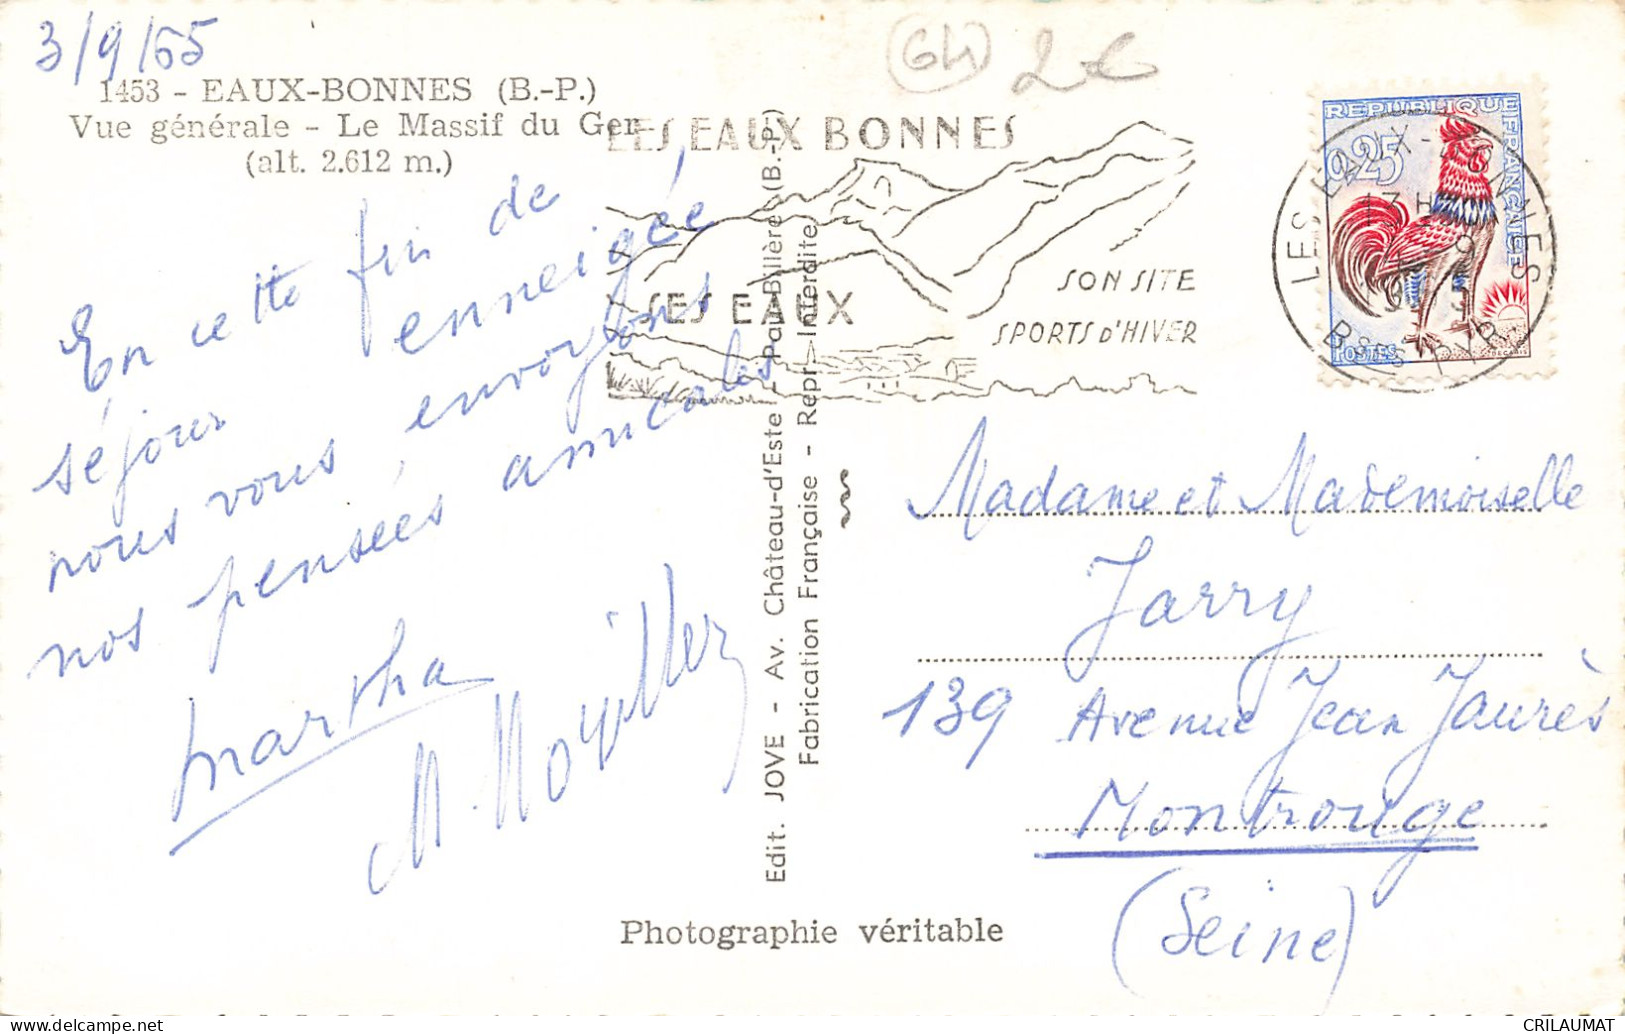 3/9/65
1453 - EAUX-BONNES (B.-P.)
Vue générale - Le Massif du Ger
(alt. 2.612 m.)
En cette fin de
séjour enneigée
nous vous envoyons
nos pensées amicales
Martha
M. Noyillez
64
2€
LES EAUX BONNES
SES EAUX
SON SITE
SPORTS D'HIVER
Edit. JOVE - Av. Château-d'Este - Pau-Billère (B.-P.)
Fabrication Française - Repr. Interdite
REPUBLIQUE FRANÇAISE
0,25
POSTES
DECARIS
LES EAUX-BONNES
13H
9
B SES PYR
Madame et Mademoiselle
Jarry
139 Avenue Jean Jaurès
Montrouge
(Seine)
Photographie véritable
https://www.delcampe.net
CRILAUMAT